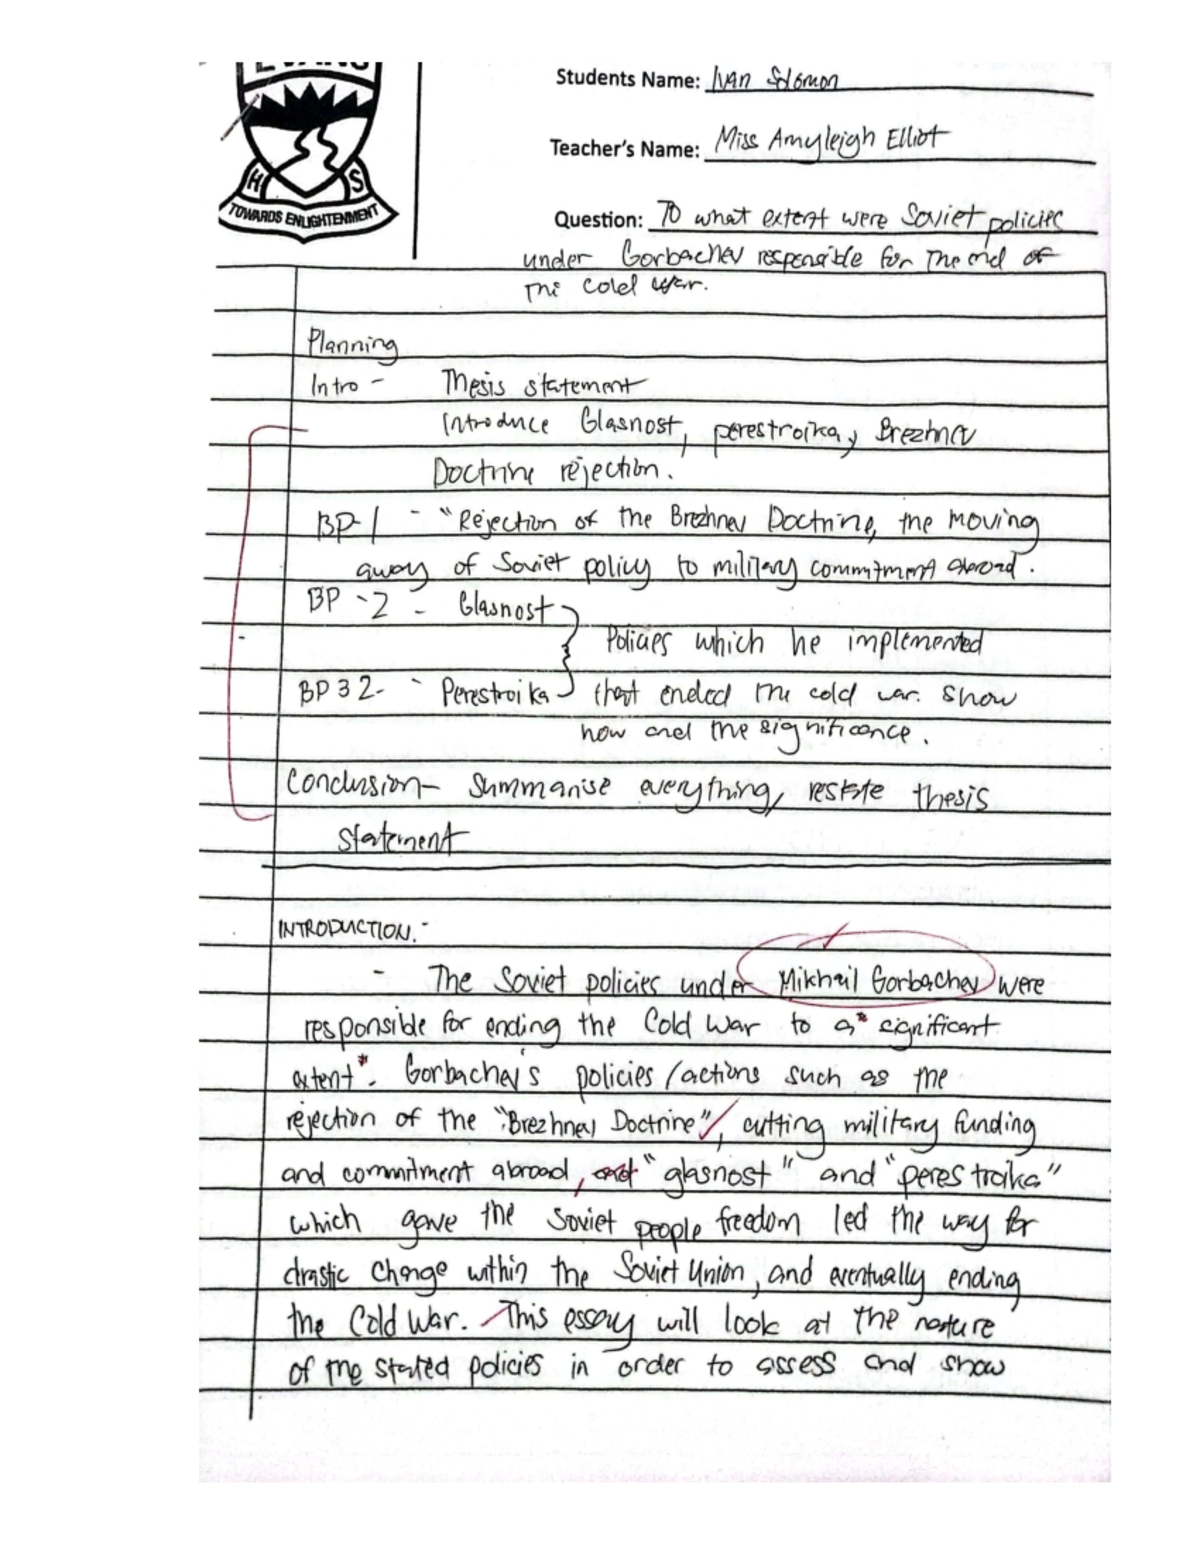 EVANS
H S
TOWARDS ENLIGHTENMENT
Students Name: Ivan Solomon
Teacher's Name: Miss Amyleigh Elliot
Question: To what extent were Soviet policies
under Gorbachev responsible for the end of
the cold war.
Planning
Intro - Thesis statement
Introduce Glasnost, perestroika, Brezhnev
Doctrine rejection.
BP-1 - "Rejection of the Brezhnev Doctrine, the moving
away of Soviet policy to military commitment abroad.
BP -2 - Glasnost
Policies which he implemented
BP 3 2- - Perestroika that ended the cold war. show
how and the significance.
Conclusion- Summarise everything, restate thesis
statement
INTRODUCTION.-
- The Soviet policies under Mikhail Gorbachev were
responsible for ending the Cold War to a* significant
extent*. Gorbachev's policies/actions such as the
rejection of the "Brezhnev Doctrine", cutting military funding
and commitment abroad, and "glasnost" and "perestroika"
which gave the Soviet people freedom led the way for
drastic change within the Soviet Union, and eventually ending
the Cold War. This essay will look at the nature
of the stated policies in order to assess and show